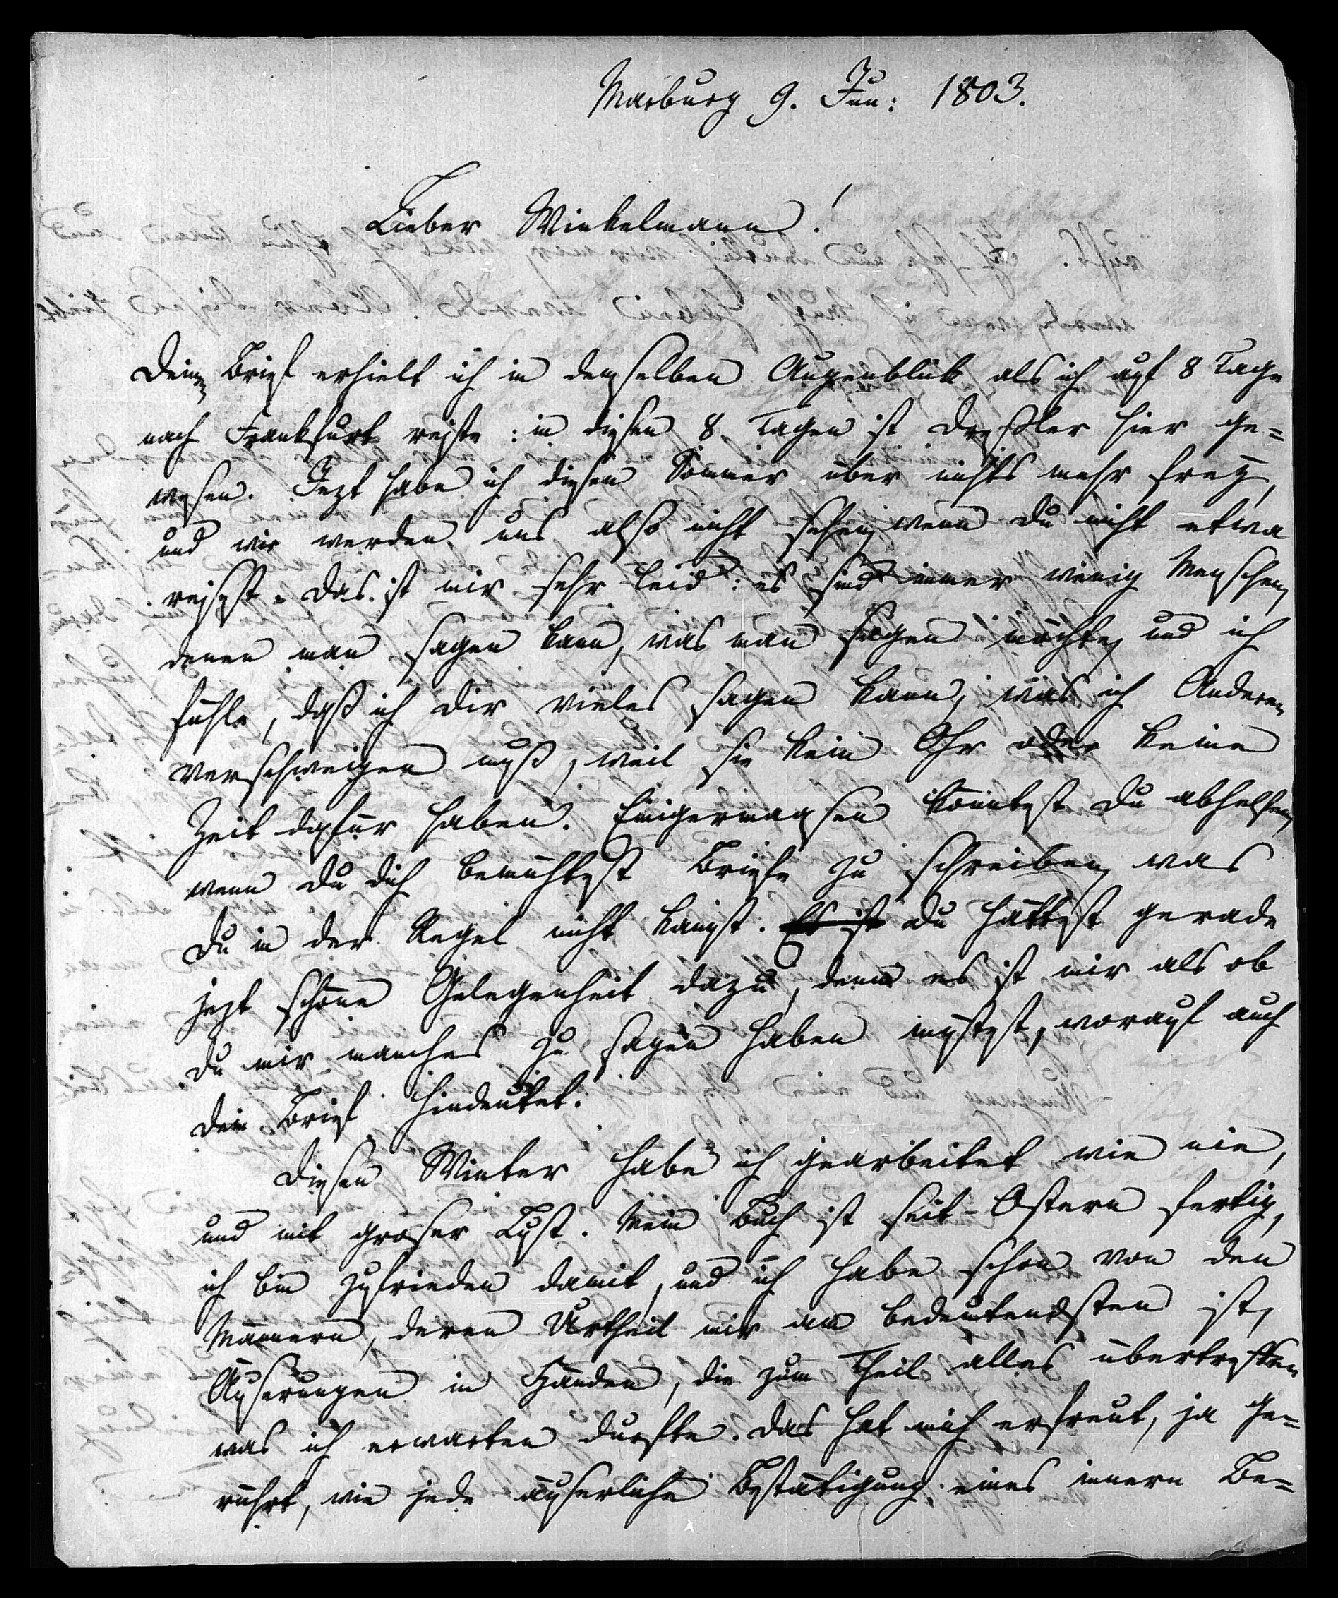 Marburg 9. Jun: 1803.
Lieber Winkelmann!
Deinen Brief erhielt ich in demselben Augenblick als ich auf 8 Tage
nach Frankfurt reiste: in diesen 8 Tagen ist Dreßler hier ge=
wesen. Jezt habe ich diesen Sommer über nichts mehr frey,
und wir werden uns also nicht sehen, wenn Du nicht etwa
reisest. Das ist mir sehr leid: es sind immer wenig Menschen,
denen man sagen kann, was man sagen möchte, und ich
fühle, daß ich Dir vieles sagen kann, was ich Anderen
verschweigen muß, weil sie kein Ohr oder keine
Zeit dafür haben. Einigermaasen könntest Du abhelfen,
wenn Du Dich bemühtest Briefe zu schreiben, was
Du in der Regel nicht kanst. Es ist Du hättest gerade
jezt schöne Gelegenheit dazu, denn es ist mir als ob
Du mir manches zu sagen haben müstest, worauf auch
Dein Brief hindeutet.
Diesen Winter habe ich gearbeitet wie nie,
und mit groser Lust. Mein Buch ist seit Ostern fertig,
ich bin zufrieden damit, und ich habe schon von den
Männern, deren Urtheil mir am bedeutendsten ist,
Äuserungen in Händen, die zum Theil alles übertreffen
was ich erwarten durfte. Das hat mich erfreut, ja ge=
rührt, wie jede äuserliche Bestätigung eines innern Be=